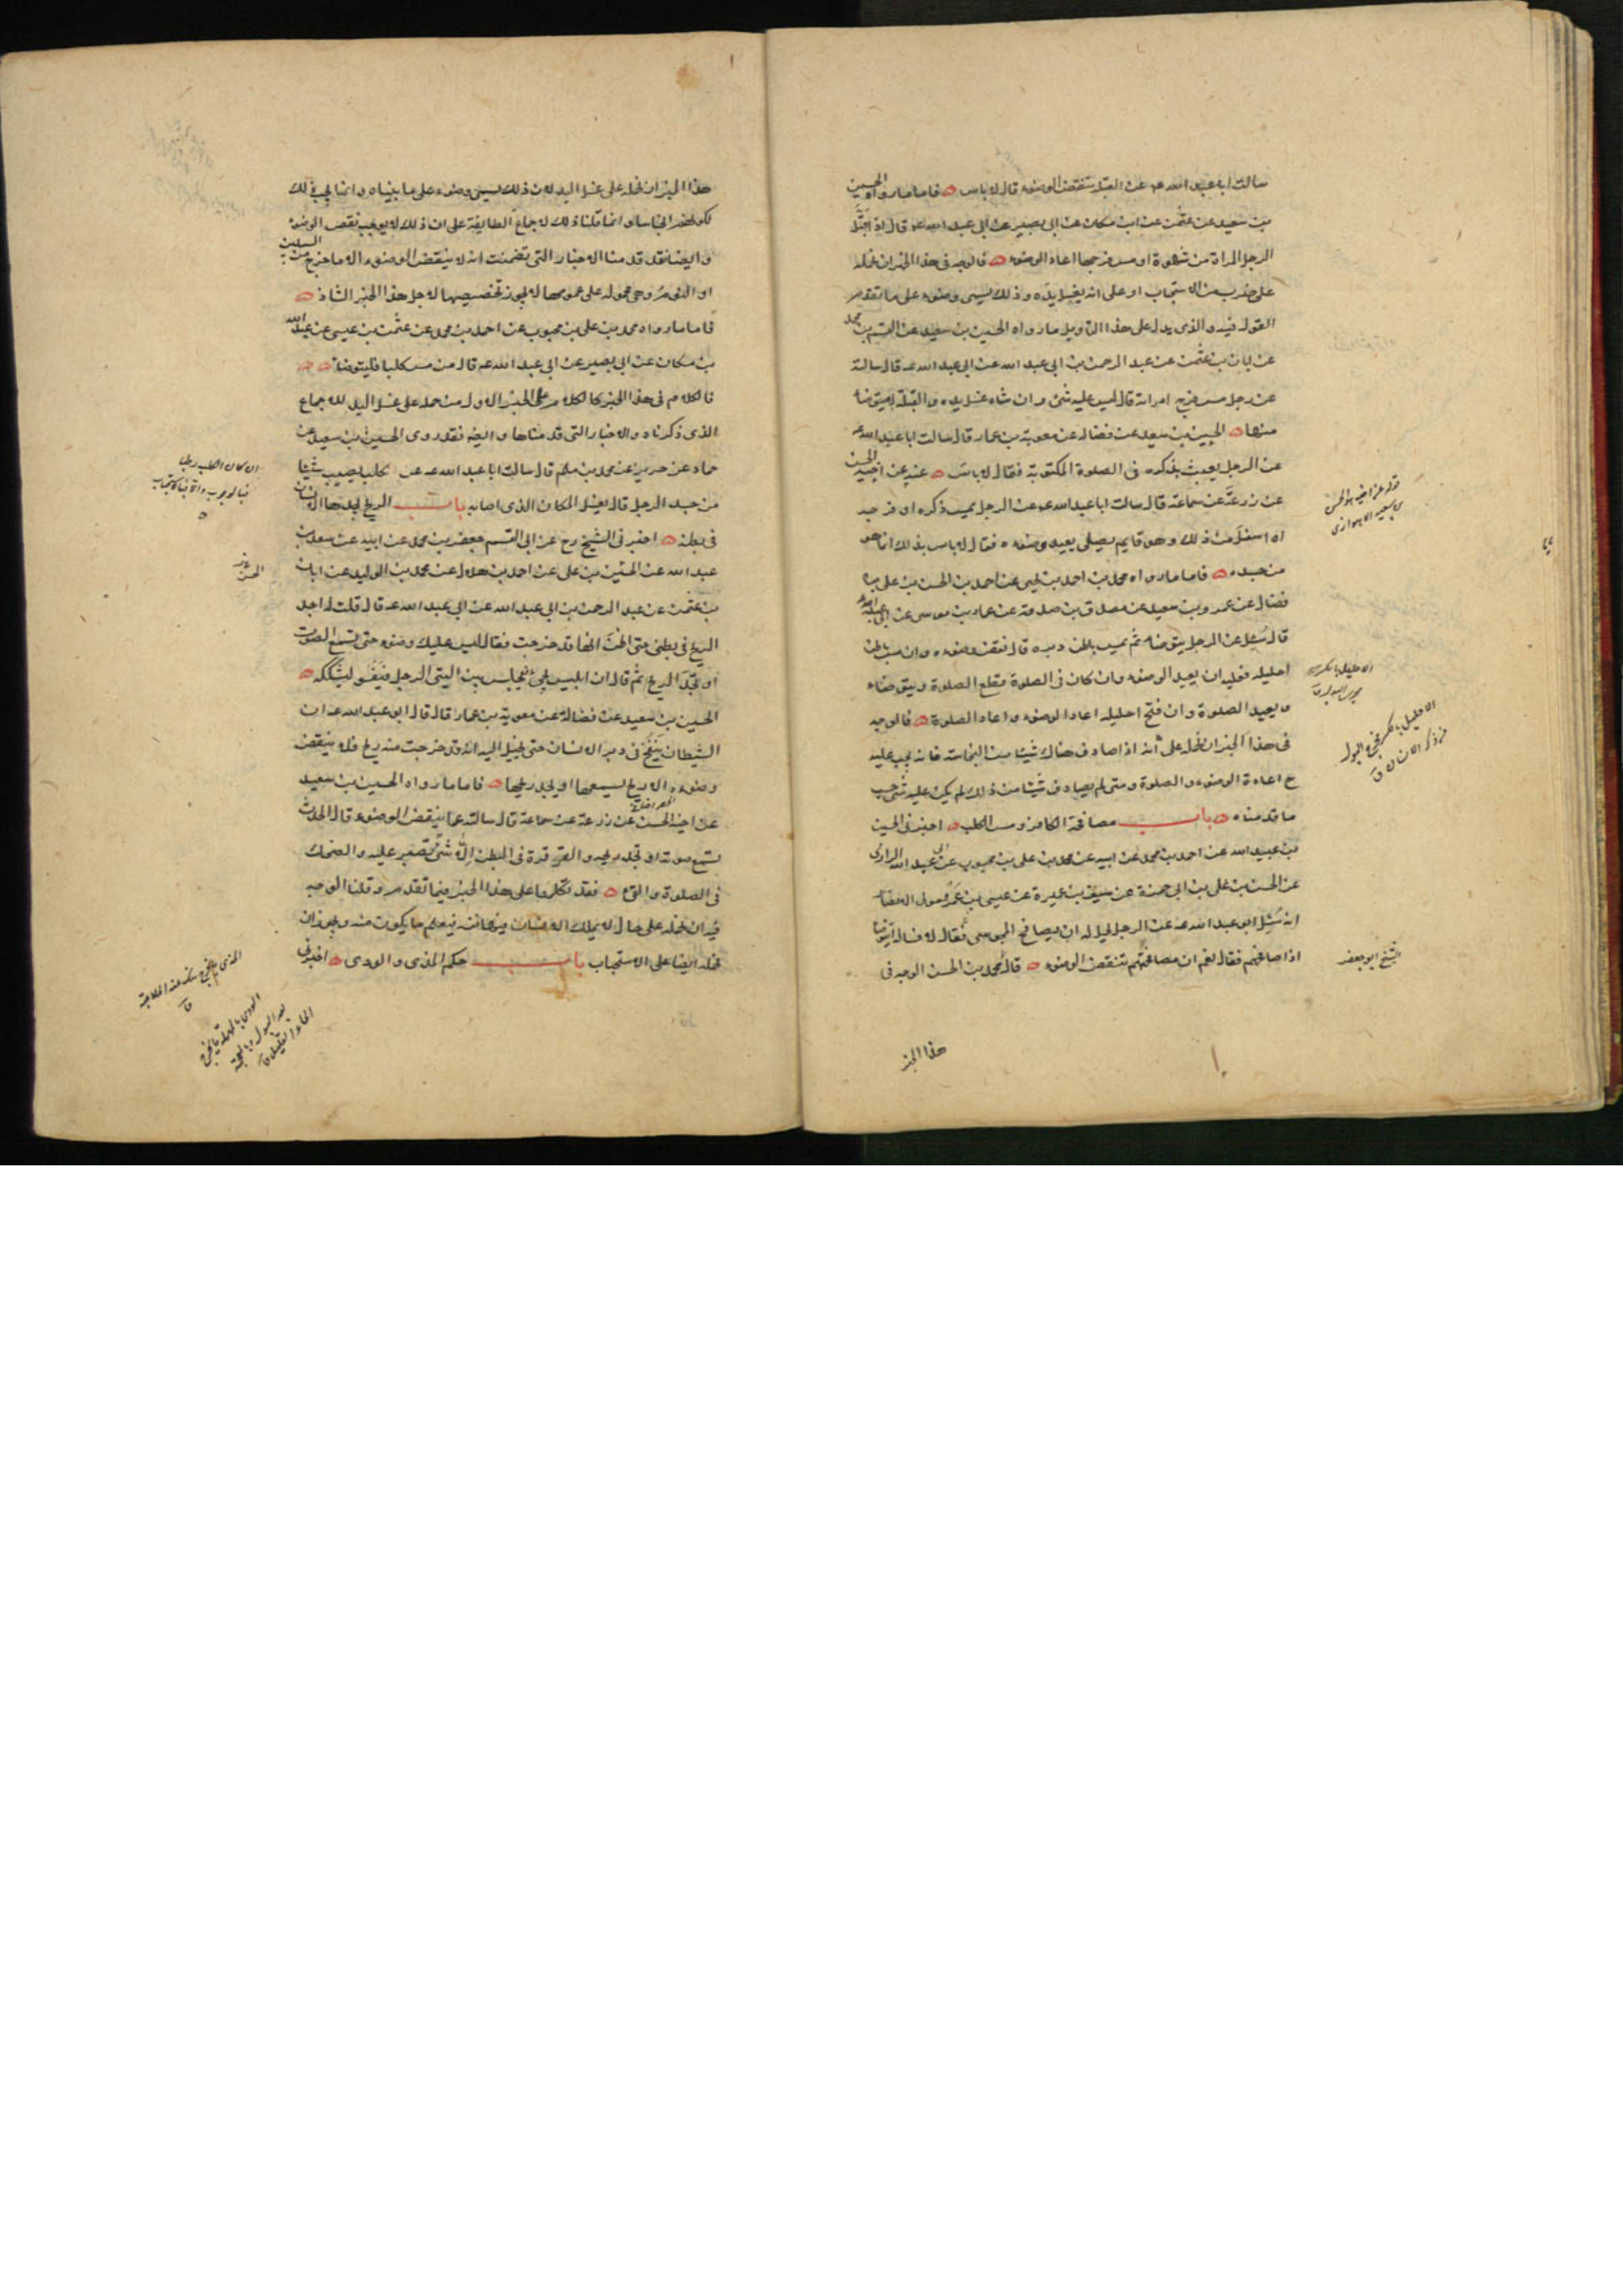 سالت ابا عبد الله عه عن القبلة ينقض الوضوء قال لا باس فاما ما رواه الحسين
بن سعيد عن عثمن عن ابن مسكان عن ابى بصير عن ابى عبد الله عه قال اذا قبّل
الرجل المراة من شهوة او مس فرجها اعاد الوضوء فالوجه فى هذا الخبر ان نحمله
على ضرب من الاستحباب او على انه يغسل يده وذلك يسمى وضوء على ما تقدم
القول فيه والذى يدل على هذا التاويل ما رواه الحسين بن سعيد عن القسم بن محمد
عن ابان بن عثمن عن عبد الرحمن بن ابى عبد الله عن ابى عبد الله عه قال سالته
عن رجل مس فرج امراته قال ليس عليه شئ وان شاء غسل يده والقبلة لا يتوضا
منها الحسين بن سعيد عن فضالة عن معوية بن عمار قال سالت ابا عبد الله عه
عن الرجل يعبث بذكره فى الصلوة المكتوبة فقال لا باس عنه عن اخيه الحسن
عن زرعة عن سماعة قال سالت ابا عبد الله عه عن الرجل يمس ذكره او فرجه
او اسفل من ذلك وهو قايم يصلى يعيد وضوءه فقال لا باس بذلك انما هو
من جسده فاما ما رواه محمد بن احمد بن يحيى عن احمد بن الحسن بن على بن
فضال عن عمرو بن سعيد عن مصدق بن صدقة عن عمار بن موسى عن ابى عبد الله عه
قال سُئِل عن الرجل يتوضا ثم يمس باطن دبره قال نقض وضوءه وان مس باطن
احليله فعليه ان يعيد الوضوء وان كان فى الصلوة قطع الصلوة ويتوضاء
ويعيد الصلوة وان فتح احليله اعاد الوضوء واعاد الصلوة فالوجه
فى هذا الخبر ان نحمله على أنه اذا صادف هناك شيئا من النجاسة فانه يجب عليه
ح اعادة الوضوء والصلوة ومتى لم يصادف شيئا من ذلك لم يكن عليه شئ حسب
ما قدمناه باب مصافحة الكافر ومس الكلب اخبرنى الحسين
بن عبيد الله عن احمد بن محمد عن ابيه عن محمد بن على بن محبوب عن ابى عبد الله الرازى
عن الحسن بن على بن ابى حمزة عن سيف بن عميرة عن عيسى بن عمر مولى الانصار
انه سُئِل ابو عبد الله عه عن الرجل يحل له ان يصافح المجوسى فقال لا فساله أيتوضا
اذا صافحهم فقال نعم ان مصافحتهم تنقض الوضوء قال محمد بن الحسن الوجه فى
هذا الخبر
قوله عن اخيه هو الحسن
بن سعيد الاهوازى
الشيخ ابو جعفر
هذا الخبر ان نحمله على غسل اليد لان ذلك يسمى وضوء على ما بيناه وانما يجب ذلك
لكونهم انجاسا وانما قلنا ذلك لاجماع الطايفة على ان ذلك لا يوجب نقض الوضوء
وايضا فقد قدمنا الاخبار التى تضمنت انه لا ينقض الوضوء الا ما خرج من السبيلين
او النوم وهى محمولة على عمومها لا يجوز تخصيصها لاجل هذا الخبر الشاذ
فاما ما رواه محمد بن على بن محبوب عن احمد بن محمد عن عثمن بن عيسى عن عبد الله
بن مسكان عن ابى بصير عن ابى عبد الله عه قال من مس كلبا فليتوضا
فالكلام فى هذا الخبر كالكلام على الخبر الاول من حمله على غسل اليد للاجماع
الذى ذكرناه والاخبار التى قدمناها وايضا فقد روى الحسين بن سعيد عن
حماد عن حريز عن محمد بن مسلم قال سالت ابا عبد الله عه عن الكلب يصيب شيئا
من جسد الرجل قال يغسل المكان الذى اصابه باب الريح يجدها الانسان
فى بطنه اخبرنى الشيخ رح عن ابى القسم جعفر بن محمد عن ابيه عن سعد بن
عبد الله عن الحسين بن على عن احمد بن هلال عن محمد بن الوليد عن ابان
بن عثمن عن عبد الرحمن بن ابى عبد الله عن ابى عبد الله عه قال قلت له اجد
الريح فى بطنى حتى اظن انها قد خرجت فقال ليس عليك وضوء حتى تسمع الصوت
او تجد الريح ثم قال ان ابليس يجئ فيجلس بين اليتى الرجل فيفسو ليشككه
الحسين بن سعيد عن فضالة عن معوية بن عمار قال قال ابو عبد الله عه ان
الشيطان ينفخ فى دبر الانسان حتى يخيل اليه انه قد خرجت منه ريح فلا ينقض
وضوءه الا ريح يسمعها او يجد ريحها فاما ما رواه الحسين بن سعيد
عن اخيه الحسن عن زرعة عن سماعة قال سالته عما ينقض الوضوء قال الحدث
تسمع صوته او تجد ريحه والقرقرة فى البطن الّا شئ تصبر عليه والضحك
فى الصلوة والقئ فقد تكلمنا على هذا الخبر فيما تقدم وقلنا الوجه
فيه ان نحمله على حال لا يملك الانسان فيها نفسه فيعلم ما يكون منه ويجوز ان
نحمله ايضا على الاستحباب باب حكم المذى والودى اخبرنى
ان كان الكلب رطبا
الحسن